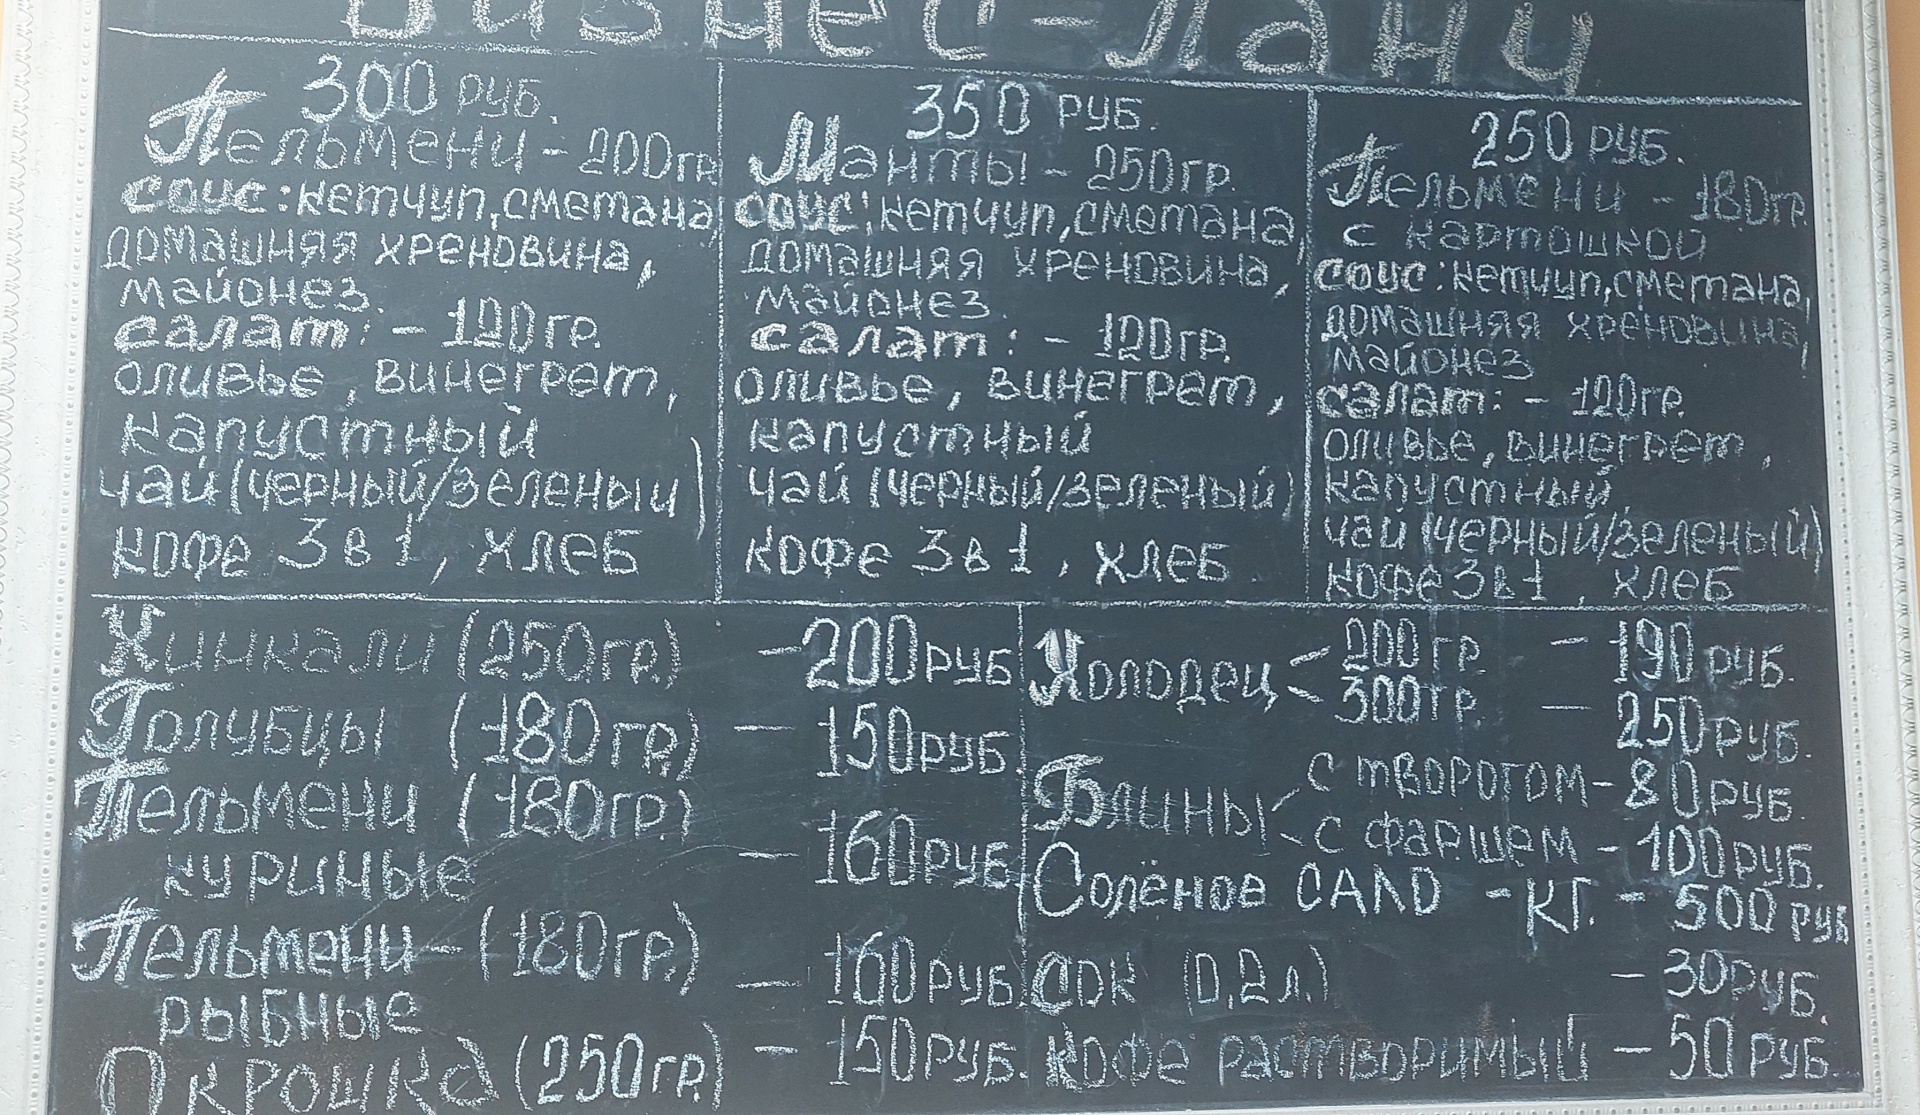 Бизнес-Ланч
300 РУБ.
Пельмени - 200гр
соус: кетчуп, сметана,
домашняя хреновина,
майонез.
салат: - 120гр.
оливье, винегрет,
капустный
чай (черный/зеленый)
кофе 3 в 1, хлеб
350 РУБ.
Манты - 250гр.
соус: кетчуп, сметана,
домашняя хреновина,
майонез
салат: - 120гр.
оливье, винегрет,
капустный
чай (черный/зеленый)
кофе 3 в 1, хлеб
250 РУБ.
Пельмени - 180гр.
с картошкой
соус: кетчуп, сметана,
домашняя хреновина,
майонез
салат: - 120гр.
оливье, винегрет,
капустный,
чай (черный/зеленый)
кофе 3 в 1, хлеб
Хинкали (250гр.) - 200 РУБ
Голубцы (180гр.) - 150 РУБ.
Пельмени (180гр.)
куриные - 160 РУБ.
Пельмени - (180гр.)
рыбные - 160 РУБ.
Окрошка (250гр.) - 150 РУБ.
Холодец < 200гр. - 190 РУБ.
< 300гр. - 250 РУБ.
Блины < с творогом - 80 РУБ.
< с фаршем - 100 РУБ.
Солёное САЛО - КГ. - 500 РУБ
Сок (0,2л.) - 30 РУБ.
Кофе растворимый - 50 РУБ.